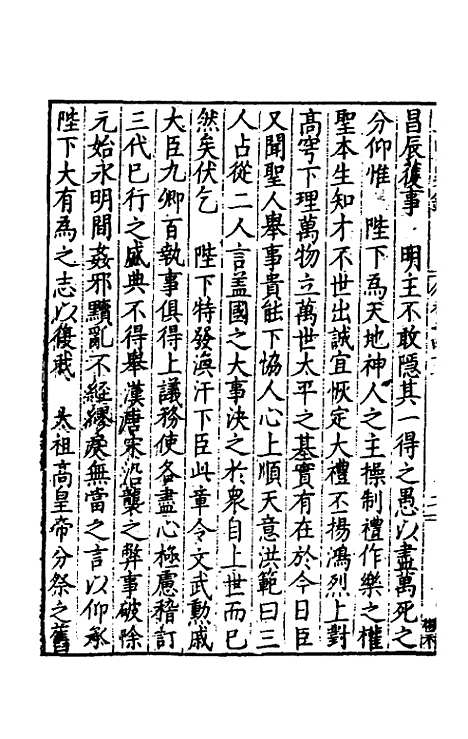 昌辰復事　明主不敢隱其一得之愚以盡萬死之
分仰惟　陛下為天地神人之主操制禮作樂之權
聖本生知才不世出誠宜恢定大禮丕揚鴻烈上對
高穹下理萬物立萬世太平之基實有在於今日臣
又聞聖人舉事貴能下協人心上順天意洪範曰三
人占從二人言蓋國之大事決之於衆自上世而已
然矣伏乞　陛下特發渙汗下臣此章令文武勳戚
大臣九卿百執事俱得上議務使各盡心極慮稽訂
三代已行之盛典不得舉漢唐宋沿襲之弊事破除
元始永明間姦邪黷亂不經繆戾無當之言以仰承
陛下大有為之志以復我　太祖高皇帝分祭之舊